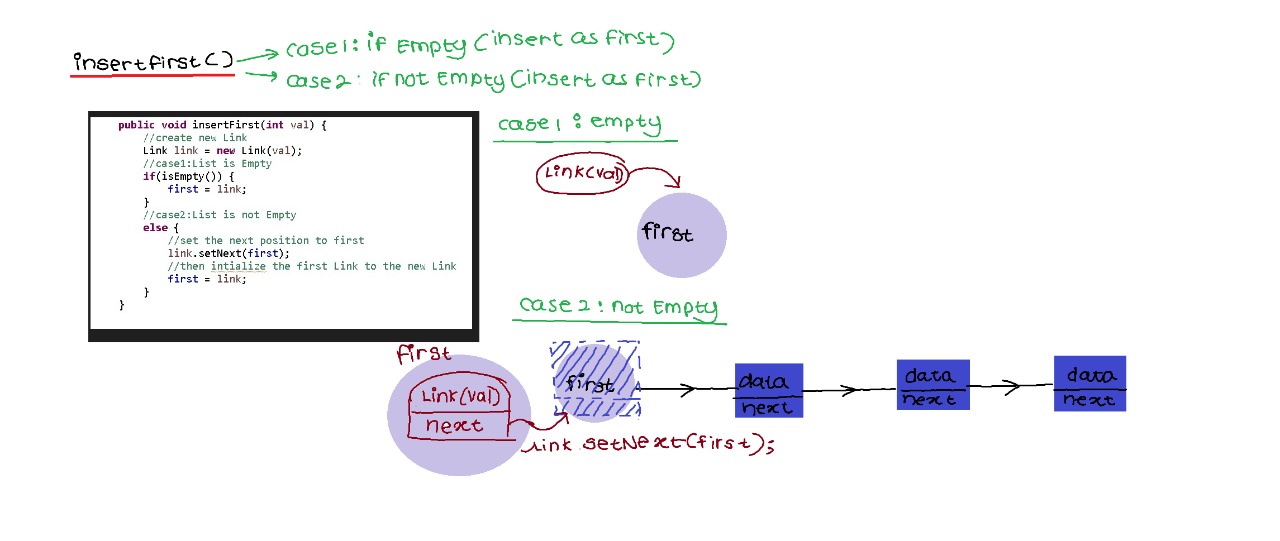 insertfirst()
case1: if Empty (insert as first)
case2: if not Empty (insert as first)
public void insertFirst(int val) {
//create new Link
Link link = new Link(val);
//case1:List is Empty
if(isEmpty()) {
first = link;
}
//case2:List is not Empty
else {
//set the next position to first
link.setNext(first);
//then intialize the first Link to the new Link
first = link;
}
}
case1: empty
Link(val)
first
case2: not Empty
first
Link(val)
next
first
data
next
data
next
data
next
link setNext(first);